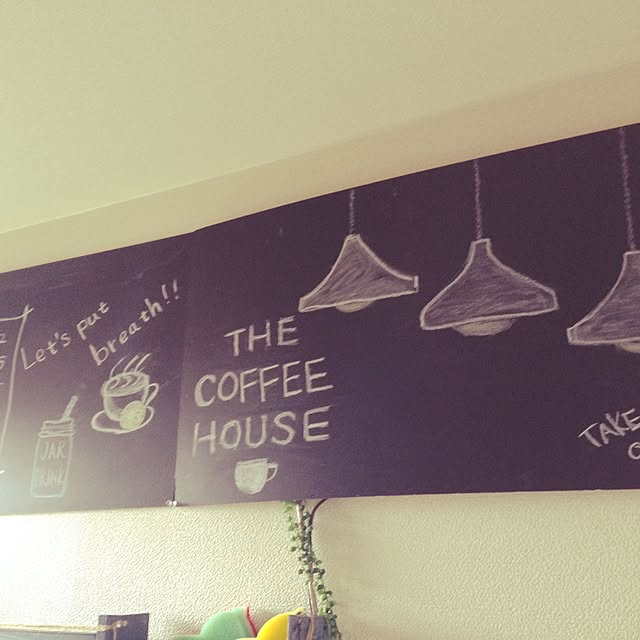 Let's put
breath!!
THE
COFFEE
HOUSE
TAKE